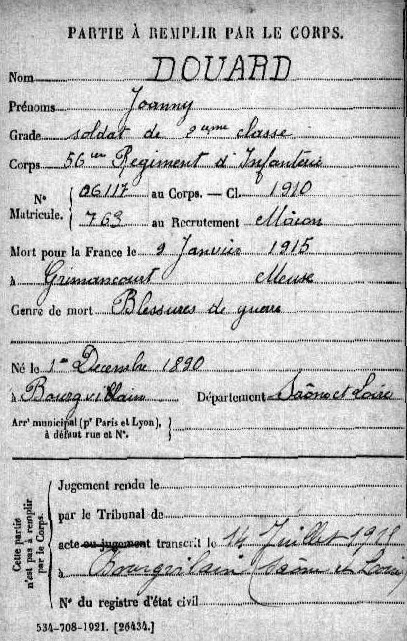 PARTIE À REMPLIR PAR LE CORPS.
Nom DOUARD
Prénoms Joanny
Grade soldat de 2eme classe
Corps 56me Régiment d'Infanterie
N° Matricule. { 06117 au Corps. — Cl. 1910
763 au Recrutement Mâcon
Mort pour la France le 9 Janvier 1915
à Grimaucourt Meuse
Genre de mort Blessures de guerre
Né le 1er Décembre 1890
à Bourgvilain Département Saône et Loire
Arrt municipal (pr Paris et Lyon), à défaut rue et N°. }
Cette partie n'est pas à remplir par le Corps.
Jugement rendu le
par le Tribunal de
acte ou jugement transcrit le 14 Juillet 1915
à Bourgvilain (Saône et Loire)
N° du registre d'état civil
534-708-1921. [26434.]